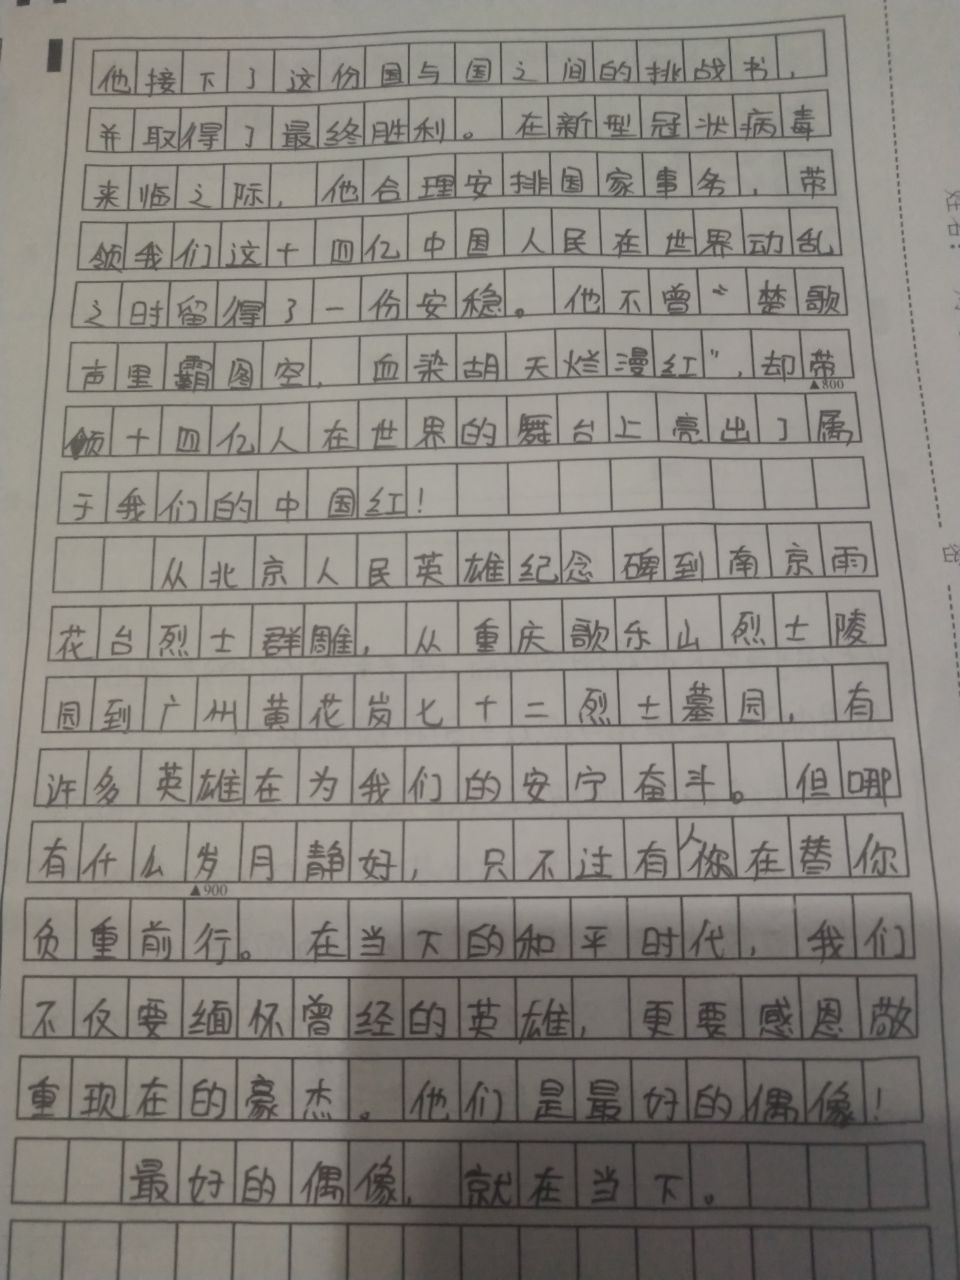 他接下了这份国与国之间的挑战书，
并取得了最终胜利。在新型冠状病毒
来临之际，他合理安排国家事务，带
领我们这十四亿中国人民在世界动乱
之时留得了一份安稳。他不曾“楚歌
声里霸图空，血染胡天烂漫红”，却带
▲800
领十四亿人在世界的舞台上亮出了属
于我们的中国红！
从北京人民英雄纪念碑到南京雨
花台烈士群雕，从重庆歌乐山烈士陵
园到广州黄花岗七十二烈士墓园，有
许多英雄在为我们的安宁奋斗。但哪
有什么岁月静好，只不过有人在替你
▲900
负重前行。在当下的和平时代，我们
不仅要缅怀曾经的英雄，更要感恩敬
重现在的豪杰。他们是最好的偶像！
最好的偶像，就在当下。